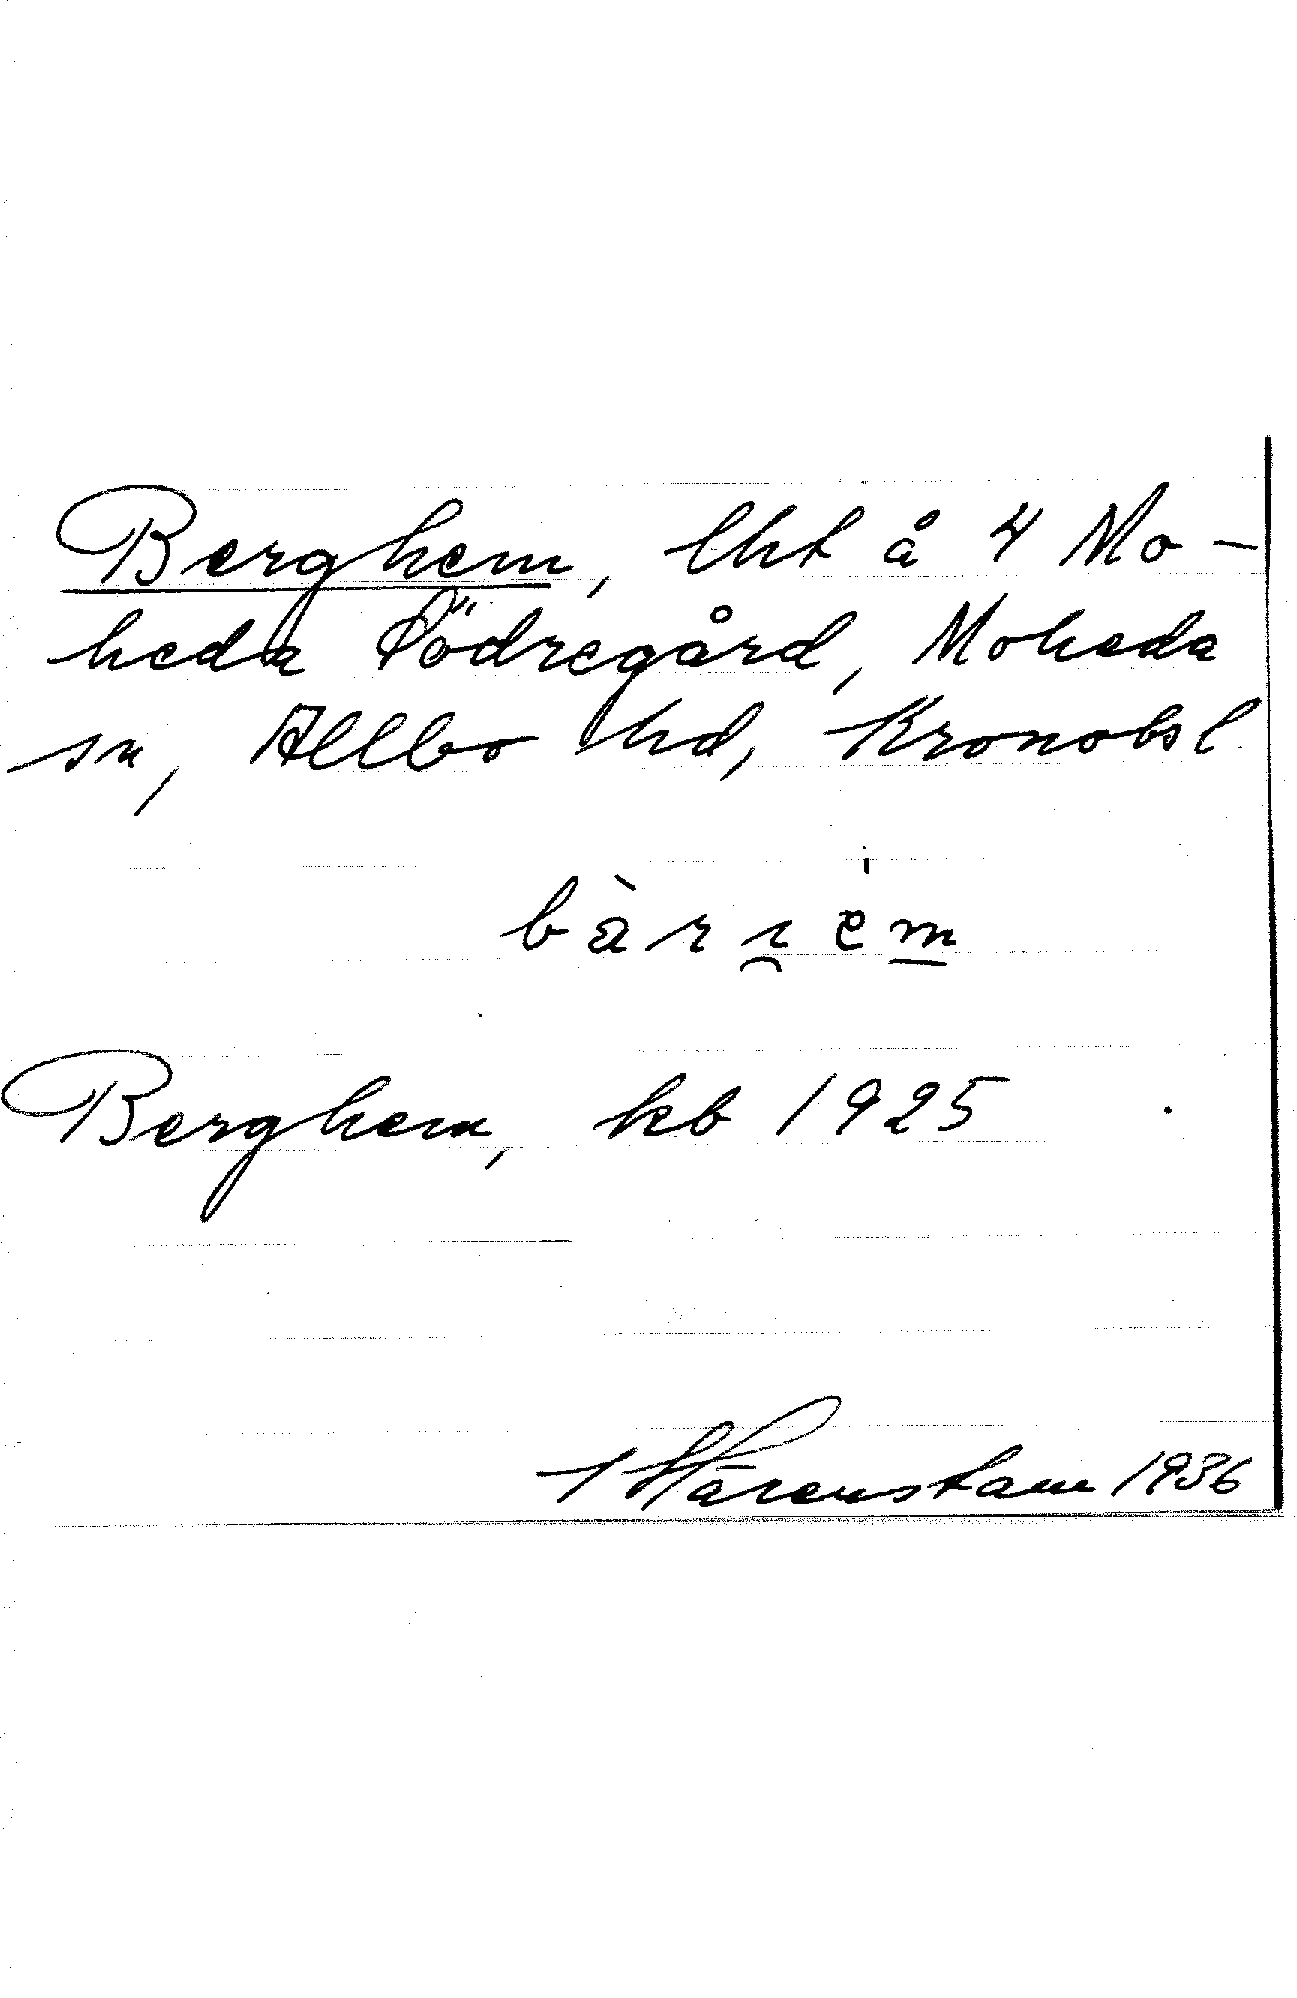 Berghem, lht å 4 Mo-
heda Södregård, Moheda
sn, Allbo hd, Kronobsl
bàrı̯ em̲
Berghem, kb 1925
Härenstam 1936